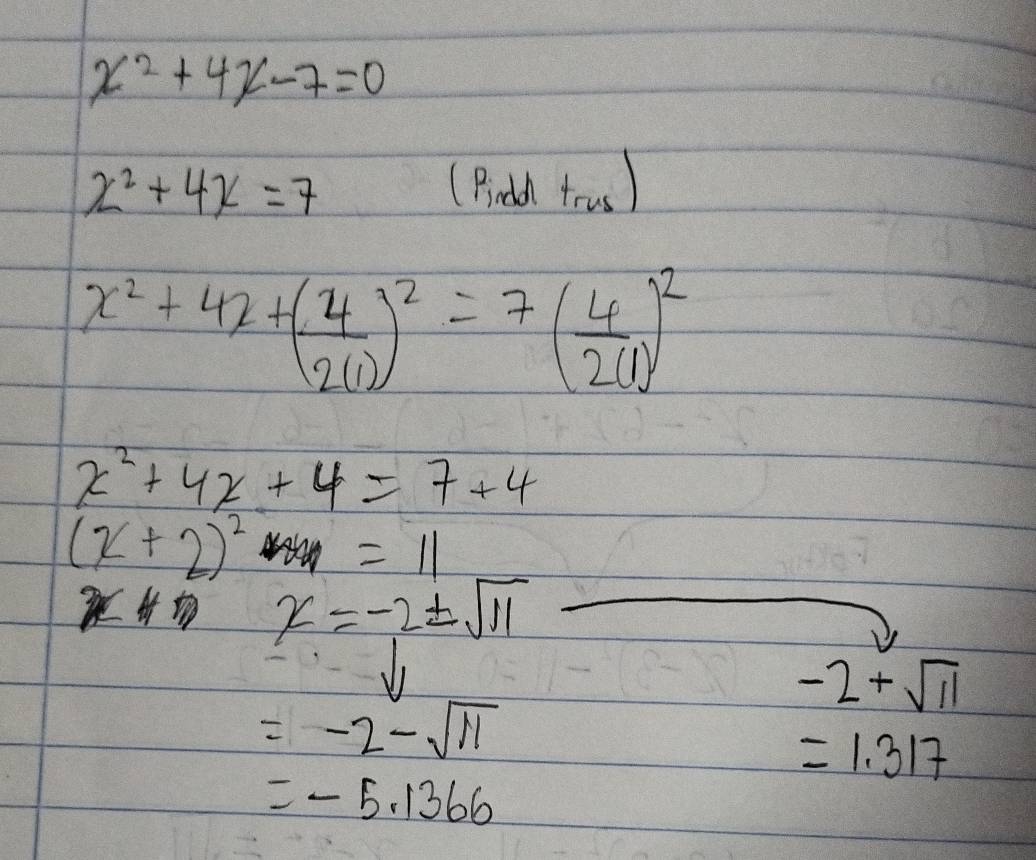 x² + 4x - 7 = 0
x² + 4x = 7 (Pindah trus)
x² + 4x + (4/2(1))² = 7 (4/2(1))²
x² + 4x + 4 = 7 + 4
(x + 2)² = 11
x = -2 ± √11
-2 + √11
= -2 - √11
= 1.317
= - 5.1366